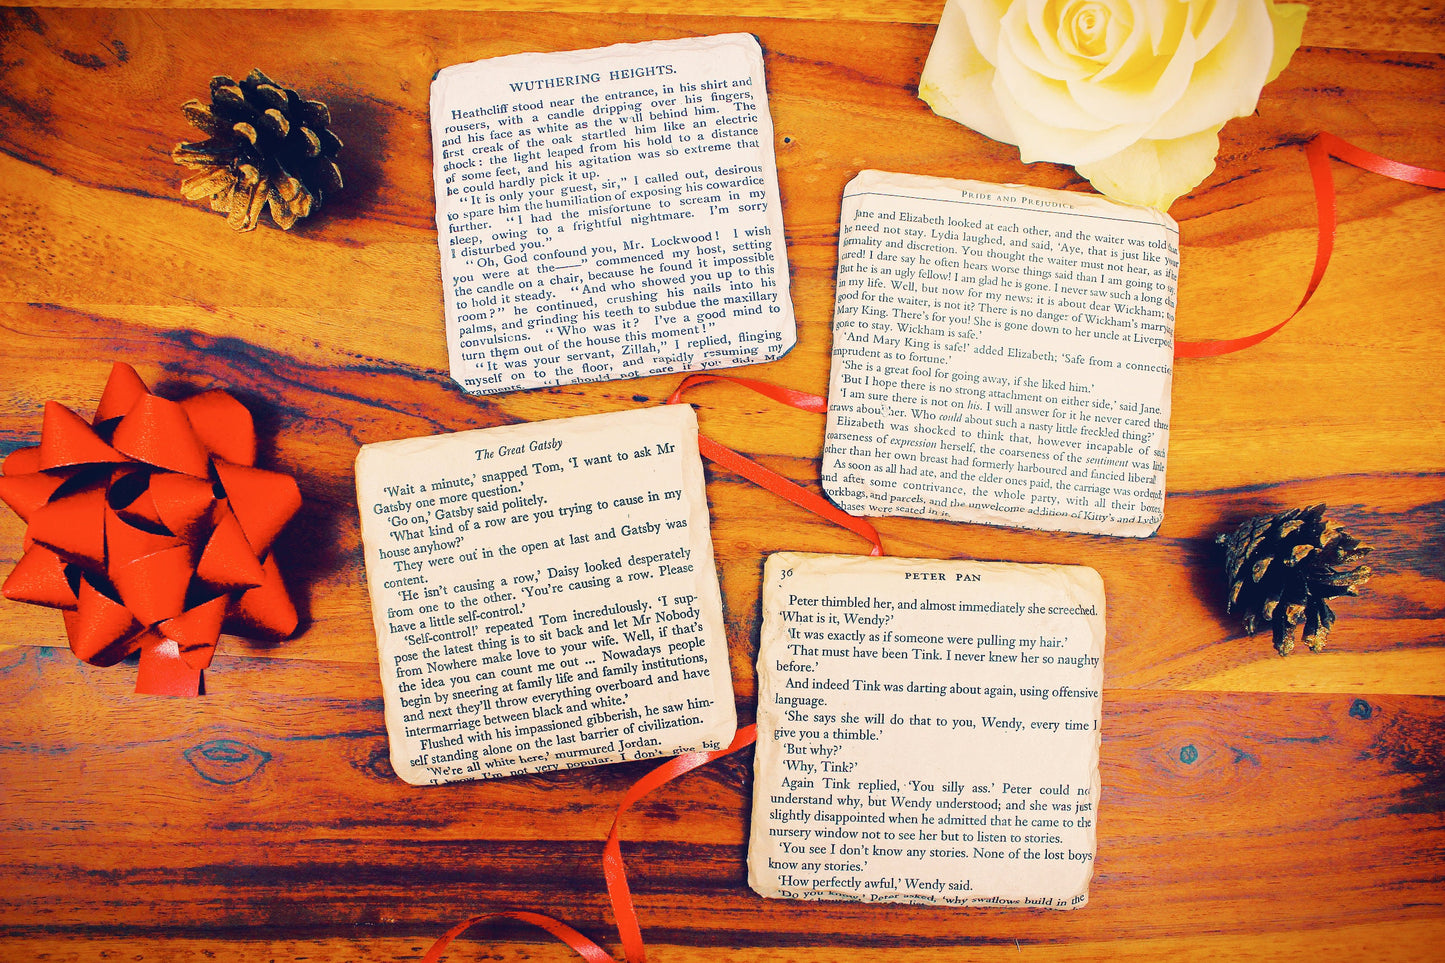 WUTHERING HEIGHTS.
Heathcliff stood near the entrance, in his shirt and
rousers, with a candle dripping over his fingers,
and his face as white as the wall behind him. The
first creak of the oak startled him like an electric
shock: the light leaped from his hold to a distance
of some feet, and his agitation was so extreme that
he could hardly pick it up.
“It is only your guest, sir,” I called out, desirous
to spare him the humiliation of exposing his cowardice
further. “I had the misfortune to scream in my
sleep, owing to a frightful nightmare. I’m sorry
I disturbed you.”
“Oh, God confound you, Mr. Lockwood! I wish
you were at the——” commenced my host, setting
the candle on a chair, because he found it impossible
to hold it steady. “And who showed you up to this
room?” he continued, crushing his nails into his
palms, and grinding his teeth to subdue the maxillary
convulsions. “Who was it? I’ve a good mind to
turn them out of the house this moment!”
“It was your servant, Zillah,” I replied, flinging
myself on to the floor, and rapidly resuming my
garments. “I should not care if you did, Mr
PRIDE AND PREJUDICE
Jane and Elizabeth looked at each other, and the waiter was told
he need not stay. Lydia laughed, and said, ‘Aye, that is just like your
formality and discretion. You thought the waiter must not hear, as if he
cared! I dare say he often hears worse things said than I am going to say.
But he is an ugly fellow! I am glad he is gone. I never saw such a long chin
in my life. Well, but now for my news: it is about dear Wickham; too
good for the waiter, is not it? There is no danger of Wickham’s marrying
Mary King. There’s for you! She is gone down to her uncle at Liverpool;
gone to stay. Wickham is safe.’
‘And Mary King is safe!’ added Elizabeth; ‘Safe from a connection
imprudent as to fortune.’
‘She is a great fool for going away, if she liked him.’
‘But I hope there is no strong attachment on either side,’ said Jane.
‘I am sure there is not on his. I will answer for it he never cared three
straws about her. Who could about such a nasty little freckled thing?’
Elizabeth was shocked to think that, however incapable of such
coarseness of expression herself, the coarseness of the sentiment was little
other than her own breast had formerly harboured and fancied liberal!
As soon as all had ate, and the elder ones paid, the carriage was ordered;
and after some contrivance, the whole party, with all their boxes,
workbags, and parcels, and the unwelcome addition of Kitty’s and Lydia’s
chases were seated in it.
The Great Gatsby
‘Wait a minute,’ snapped Tom, ‘I want to ask Mr
Gatsby one more question.’
‘Go on,’ Gatsby said politely.
‘What kind of a row are you trying to cause in my
house anyhow?’
They were out in the open at last and Gatsby was
content.
‘He isn’t causing a row,’ Daisy looked desperately
from one to the other. ‘You’re causing a row. Please
have a little self-control.’
‘Self-control!’ repeated Tom incredulously. ‘I sup-
pose the latest thing is to sit back and let Mr Nobody
from Nowhere make love to your wife. Well, if that’s
the idea you can count me out ... Nowadays people
begin by sneering at family life and family institutions,
and next they’ll throw everything overboard and have
intermarriage between black and white.’
Flushed with his impassioned gibberish, he saw him-
self standing alone on the last barrier of civilization.
‘We’re all white here,’ murmured Jordan.
‘I know I’m not very popular. I don’t give big
36 PETER PAN
Peter thimbled her, and almost immediately she screeched.
‘What is it, Wendy?’
‘It was exactly as if someone were pulling my hair.’
‘That must have been Tink. I never knew her so naughty
before.’
And indeed Tink was darting about again, using offensive
language.
‘She says she will do that to you, Wendy, every time I
give you a thimble.’
‘But why?’
‘Why, Tink?’
Again Tink replied, ‘You silly ass.’ Peter could not
understand why, but Wendy understood; and she was just
slightly disappointed when he admitted that he came to the
nursery window not to see her but to listen to stories.
‘You see I don’t know any stories. None of the lost boys
know any stories.’
‘How perfectly awful,’ Wendy said.
‘Do you know,’ Peter asked, ‘why swallows build in the